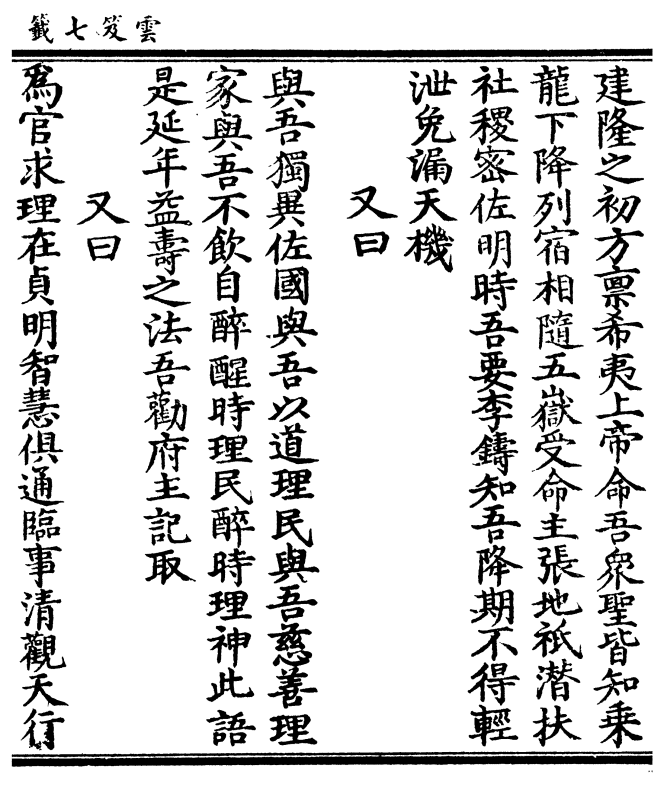 雲笈七籤
建隆之初方禀希夷上帝命吾衆聖皆知乗
龍下降列宿相隨五嶽受命主張地祇潜扶
社稷密佐明時吾要李鑄知吾降期不得輕
泄免漏天機
又曰
與吾獨異佐國與吾以道理民與吾慈善理
家與吾不飲自醉醒時理民醉時理神此語
是延年益壽之法吾勸府主記取
又曰
爲官求理在貞明智慧俱通臨事清觀天行